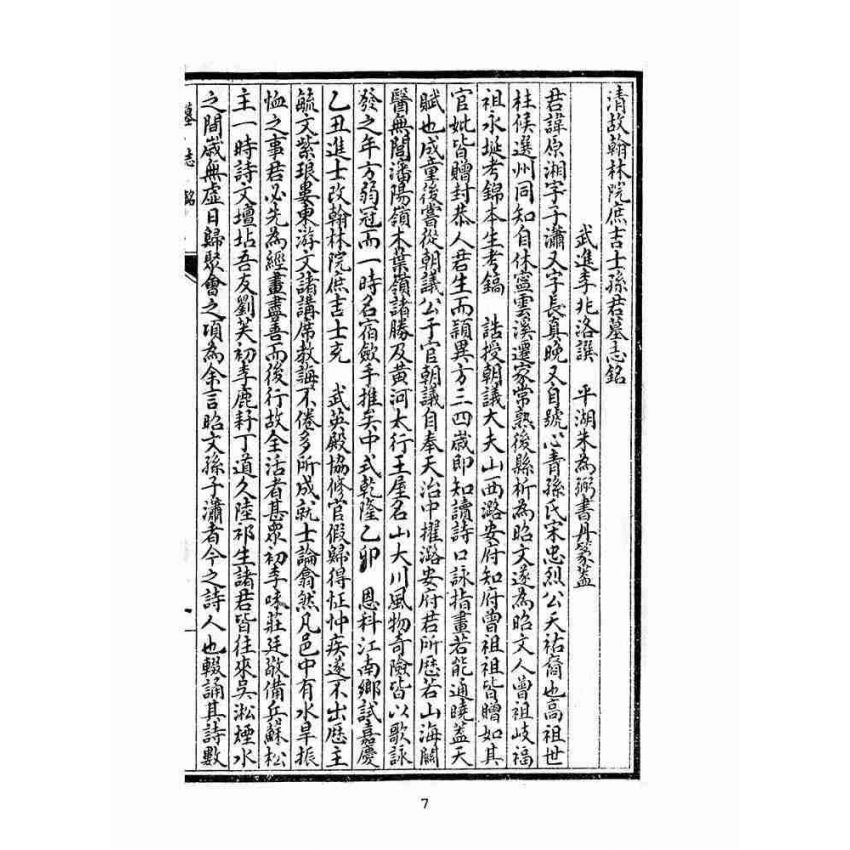 清故翰林院庶吉士孫君墓志銘
武進李兆洛譔　平湖朱為弼書丹篆蓋
君諱原湘字子瀟又字長真晚又自號心青孫氏宋忠烈公天祐裔也高祖世
柱候選州同知自休寧雲溪遷家常熟後縣析為昭文遂為昭文人曾祖岐福
祖永埏考錦本生考鎬　誥授朝議大夫山西潞安府知府曾祖祖皆贈如其
官妣皆贈封恭人君生而穎異方三四歲即知讀詩口詠指畫若能通曉蓋天
賦也成童後嘗從朝議公于官朝議自奉天治中擢潞安府君所歷若山海關
醫無閭瀋陽嶺木葉嶺諸勝及黃河太行王屋名山大川風物奇險皆以歌詠
發之年方弱冠而一時名宿歛手推矣中式乾隆乙卯　恩科江南鄉試嘉慶
乙丑進士改翰林院庶吉士充　武英殿協修官假歸得怔忡疾遂不出歷主
毓文紫琅婁東游文諸講席教誨不倦多所成就士論翕然凡邑中有水旱振
恤之事君必先為經畫盡善而後行故全活者甚眾初李味莊廷敬備兵蘇松
主一時詩文壇坫吾友劉芙初李鹿耔丁道久陸祁生諸君皆往來吳淞煙水
之間歲無虛日歸聚會之項為余言昭文孫子瀟者今之詩人也輟誦其詩數
墓志銘
一
7